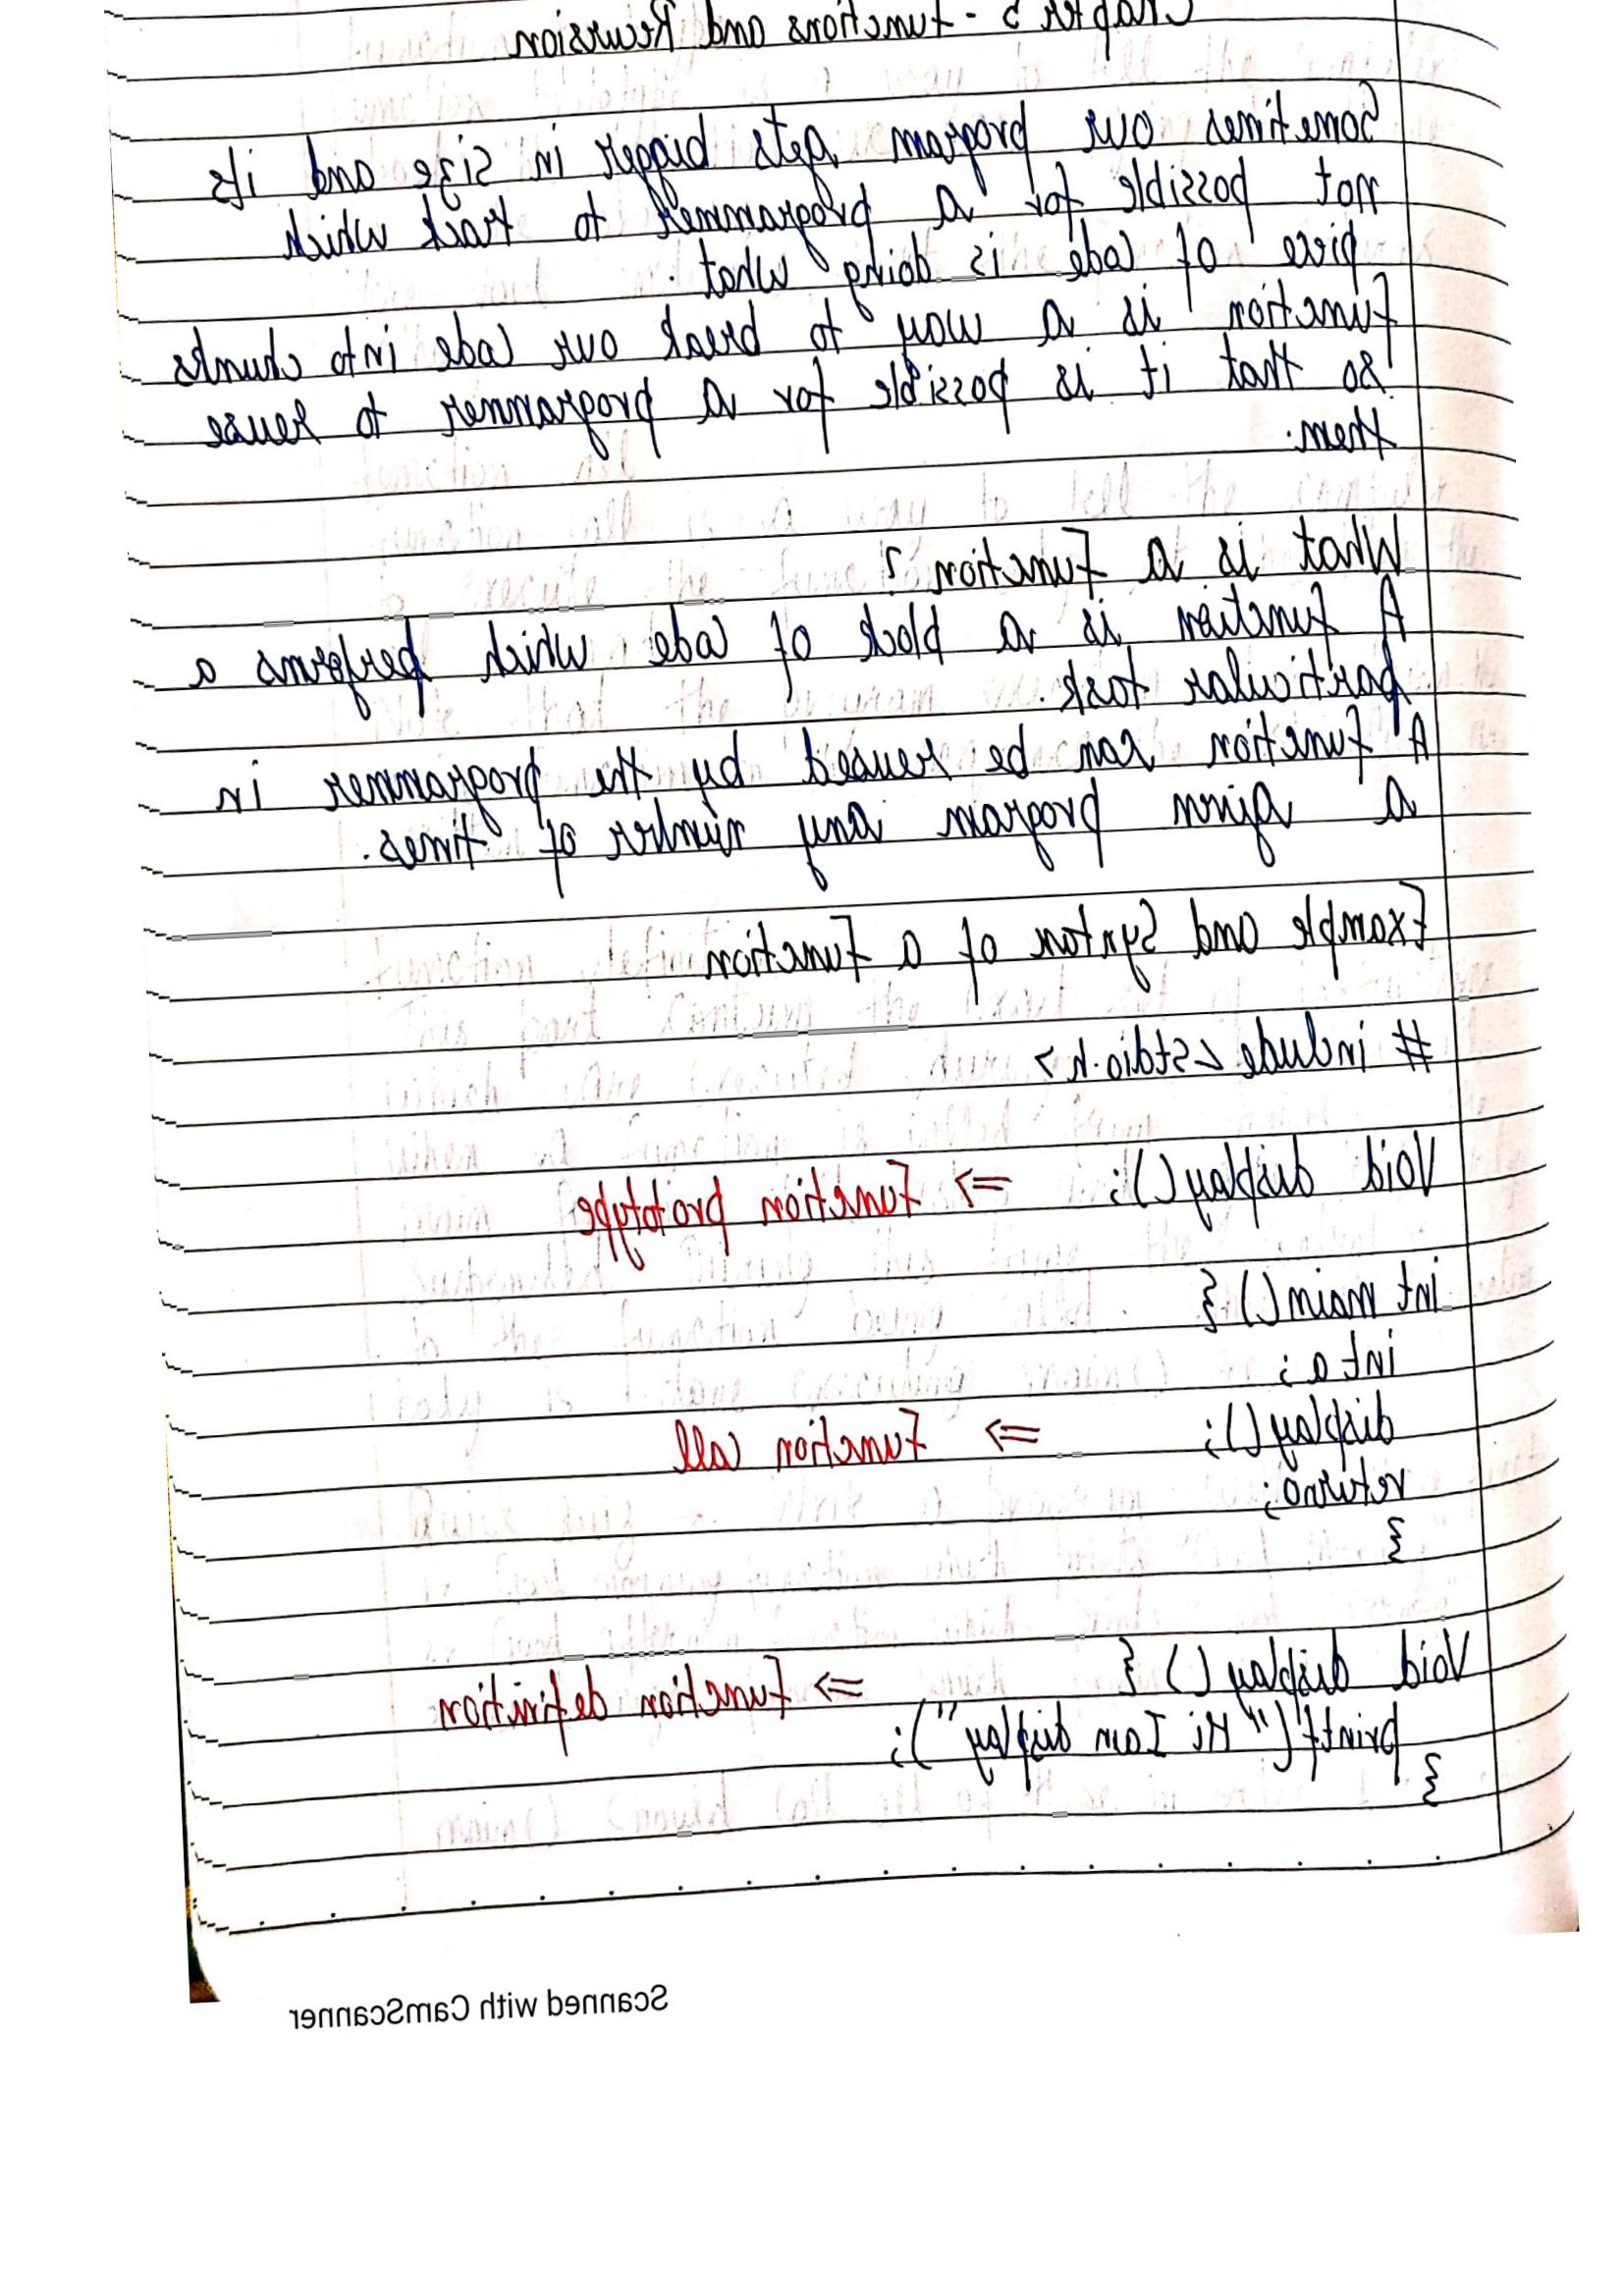 Chapter 5 - Functions and Recursion
Sometimes our program gets bigger in size and its
not possible for a programmer to track which
piece of code is doing what.
Function is a way to break our code into chunks
so that it is possible for a programmer to reuse
them.
What is a Function?
A function is a block of code which performs a
particular task.
A function can be reused by the programmer in
a given program any number of times.
Example and Syntax of a Function
# include <stdio.h>
Void display(); => Function prototype
int main() {
int a;
display(); => Function call
return0;
}
Void display() { => function definition
printf("Hi I am display");
}
Scanned with CamScanner